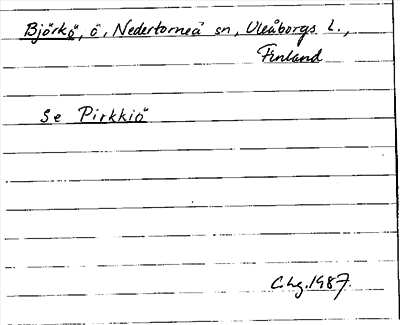 Björkö, ö, Nedertorneå sn, Uleåborgs l.,
Finland
Se Pirkkiö
C.hg. 1987.